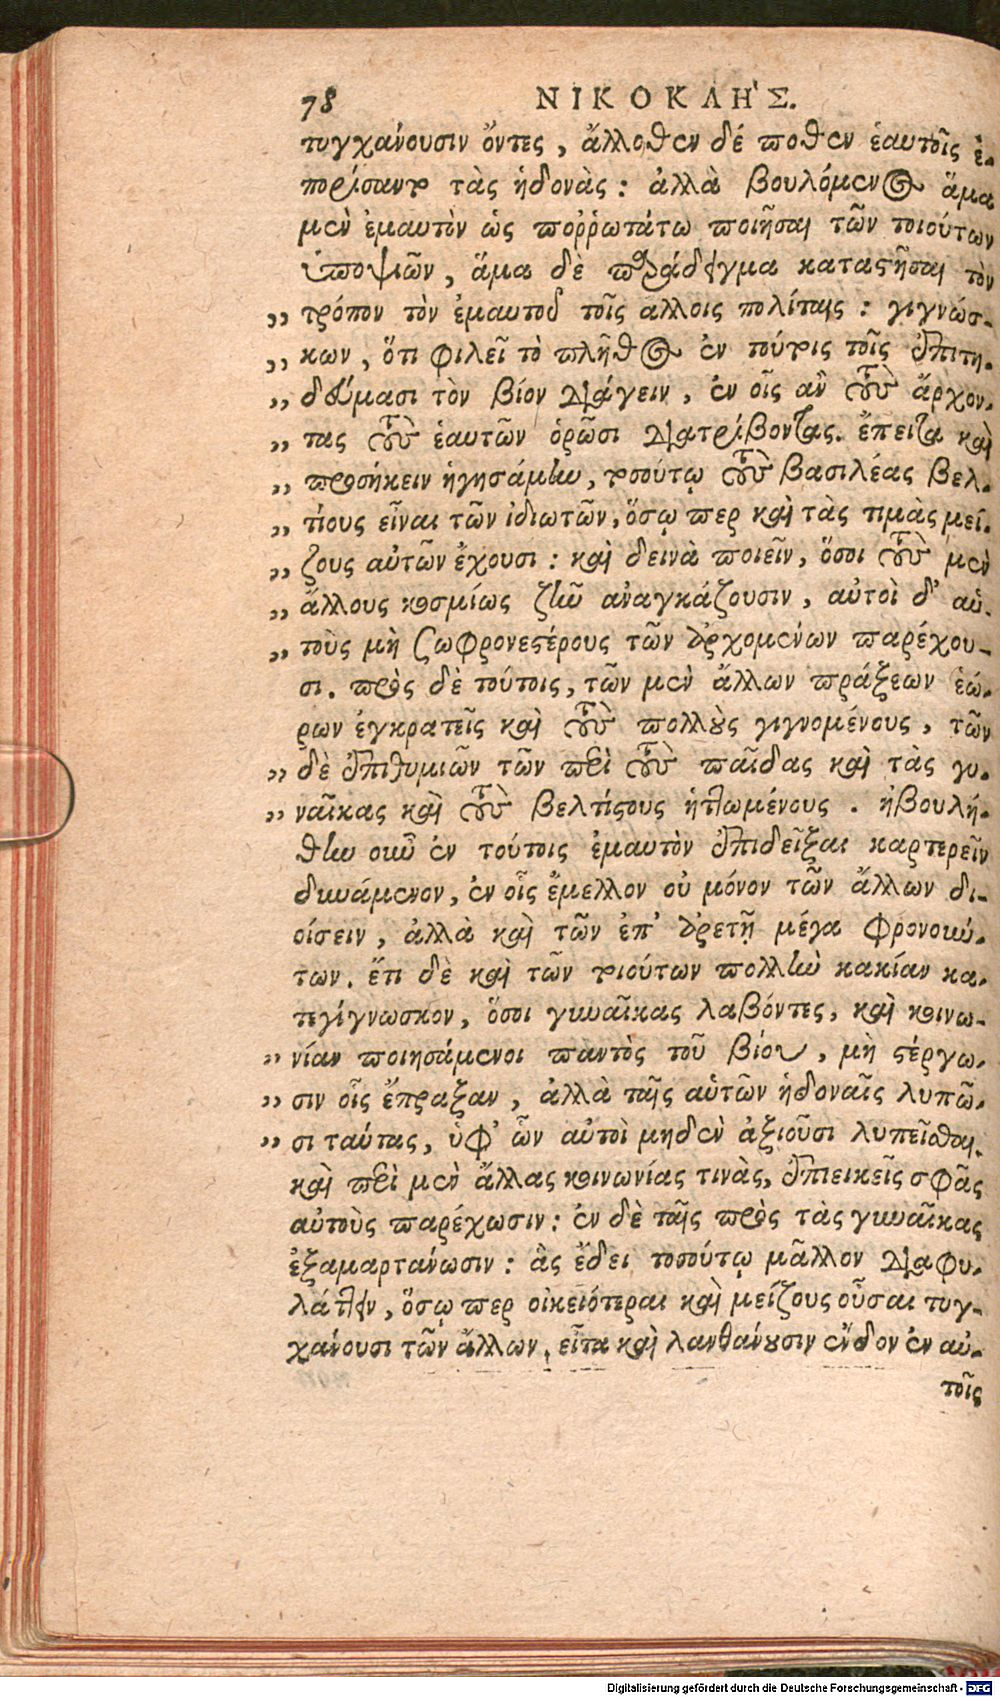 78 ΝΙΚΟΚΛΗ'Σ.
τυγχάνουσιν ὄντες, ἄλλοθεν δέ ποθεν ἑαυτοῖς ἐ-
πορίσαντο τὰς ἡδονὰς: ἀλλὰ βουλόμενος ἅμα
μὲν ἐμαυτὸν ὡς ποῤῥωτάτω ποιῆσαι τῶν τοιούτων
ὑποψιῶν, ἅμα δὲ παράδειγμα καταστῆσαι τὸν
„ τρόπον τὸν ἐμαυτοῦ τοῖς ἄλλοις πολίταις: γιγνώσ-
„ κων, ὅτι φιλεῖ τὸ πλῆθος ἐν τούτοις τοῖς ἐπιτη-
„ δεύμασι τὸν βίον διάγειν, ἐν οἷς ἂν τοὺς ἄρχον-
„ τας τοὺς ἑαυτῶν ὁρῶσι διατρίβοντας. ἔπειτα καὶ
„ προσήκειν ἡγησάμην, τοσούτῳ τοὺς βασιλέας βελ-
„ τίους εἶναι τῶν ἰδιωτῶν, ὅσῳ περ καὶ τὰς τιμὰς μεί-
„ ζους αὐτῶν ἔχουσι: καὶ δεινὰ ποιεῖν, ὅσοι τοὺς μὲν
„ ἄλλους κοσμίως ζῆν ἀναγκάζουσιν, αὐτοὶ δ' αὑ-
„ τοὺς μὴ σωφρονεστέρους τῶν ἀρχομένων παρέχου-
σι. πρὸς δὲ τούτοις, τῶν μὲν ἄλλων πράξεων ἑώ-
ρων ἐγκρατεῖς καὶ τοὺς πολλοὺς γιγνομένους, τῶν
„ δὲ ἐπιθυμιῶν τῶν περὶ τοὺς παῖδας καὶ τὰς γυ-
„ ναῖκας καὶ τοὺς βελτίστους ἡττωμένους. ἠβουλή-
θην οὖν ἐν τούτοις ἐμαυτὸν ἐπιδεῖξαι καρτερεῖν
δυνάμενον, ἐν οἷς ἔμελλον οὐ μόνον τῶν ἄλλων δι-
οίσειν, ἀλλὰ καὶ τῶν ἐπ' ἀρετῇ μέγα φρονούν-
των. ἔτι δὲ καὶ τῶν τοιούτων πολλὴν κακίαν κα-
τεγίγνωσκον, ὅσοι γυναῖκας λαβόντες, καὶ κοινω-
„ νίαν ποιησάμενοι παντὸς τοῦ βίου, μὴ στέργω-
„ σιν οἷς ἔπραξαν, ἀλλὰ ταῖς αὑτῶν ἡδοναῖς λυπῶ-
„ σι ταύτας, ὑφ' ὧν αὐτοὶ μηδὲν ἀξιοῦσι λυπεῖσθαι.
καὶ περὶ μὲν ἄλλας κοινωνίας τινὰς, ἐπιεικεῖς σφᾶς
αὐτοὺς παρέχωσιν: ἐν δὲ ταῖς πρὸς τὰς γυναῖκας
ἐξαμαρτάνωσιν: ἃς ἔδει τοσούτῳ μᾶλλον διαφυ-
λάττειν, ὅσῳ περ οἰκειότεραι καὶ μείζους οὖσαι τυγ-
χάνουσι τῶν ἄλλων. εἶτα καὶ λανθάνουσιν ἔνδον ἐν αὐ-
τοῖς
Digitalisierung gefördert durch die Deutsche Forschungsgemeinschaft - DFG